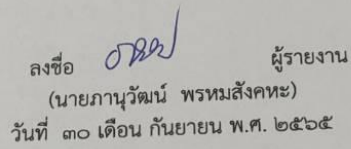 ลงชื่อ ผู้รายงาน
(นายภานุวัฒน์ พรหมสังคหะ)
วันที่ ๓๐ เดือน กันยายน พ.ศ. ๒๕๖๕